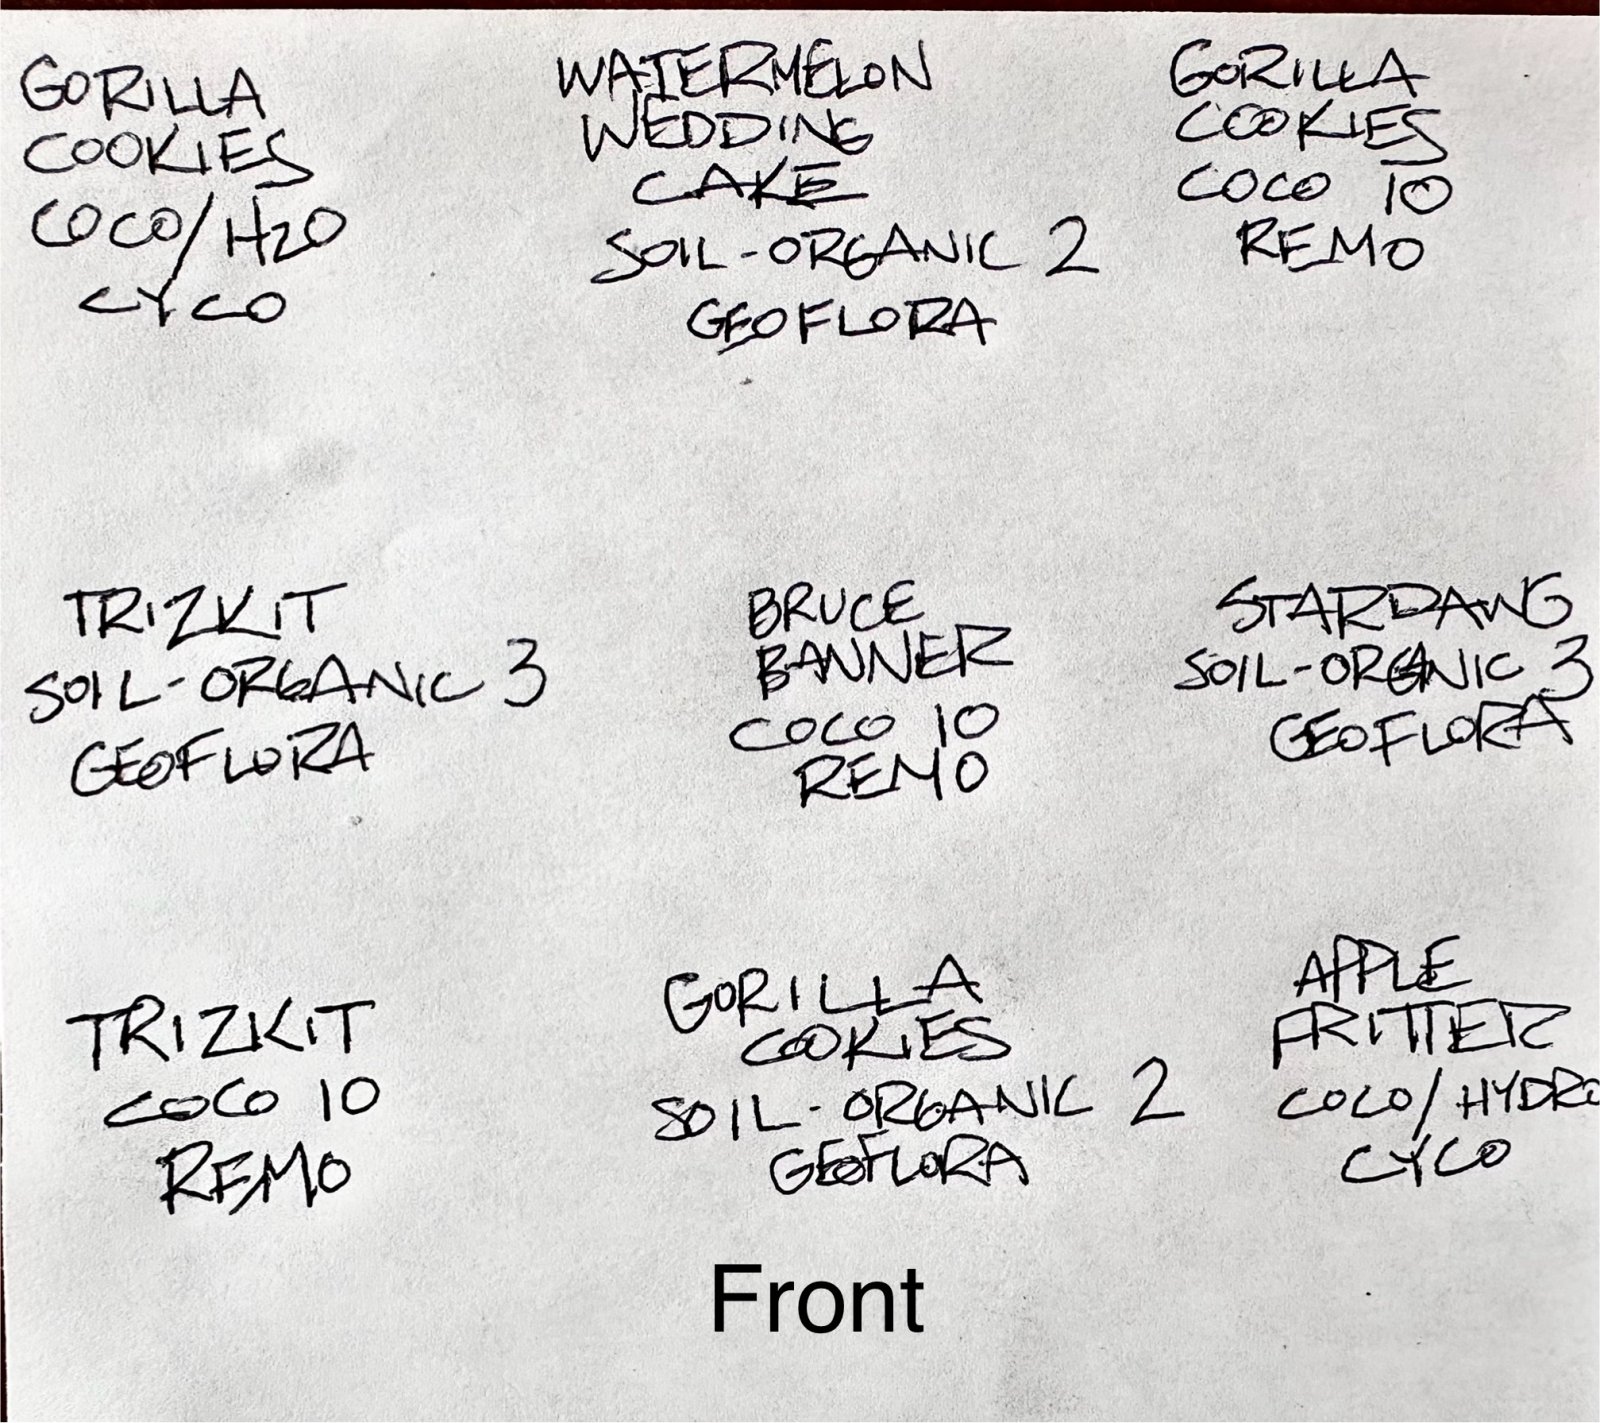 GORILLA
COOKIES
COCO/H2O
CYCO
WATERMELON
WEDDING
CAKE
SOIL-ORGANIC 2
GEOFLORA
GORILLA
COOKIES
COCO 10
REMO
TRIZKIT
SOIL-ORGANIC 3
GEOFLORA
BRUCE
BANNER
COCO 10
REMO
STARDAWG
SOIL-ORGANIC 3
GEOFLORA
TRIZKIT
COCO 10
REMO
GORILLA
COOKIES
SOIL-ORGANIC 2
GEOFLORA
APPLE
FRITTER
COCO/HYDRO
CYCO
Front